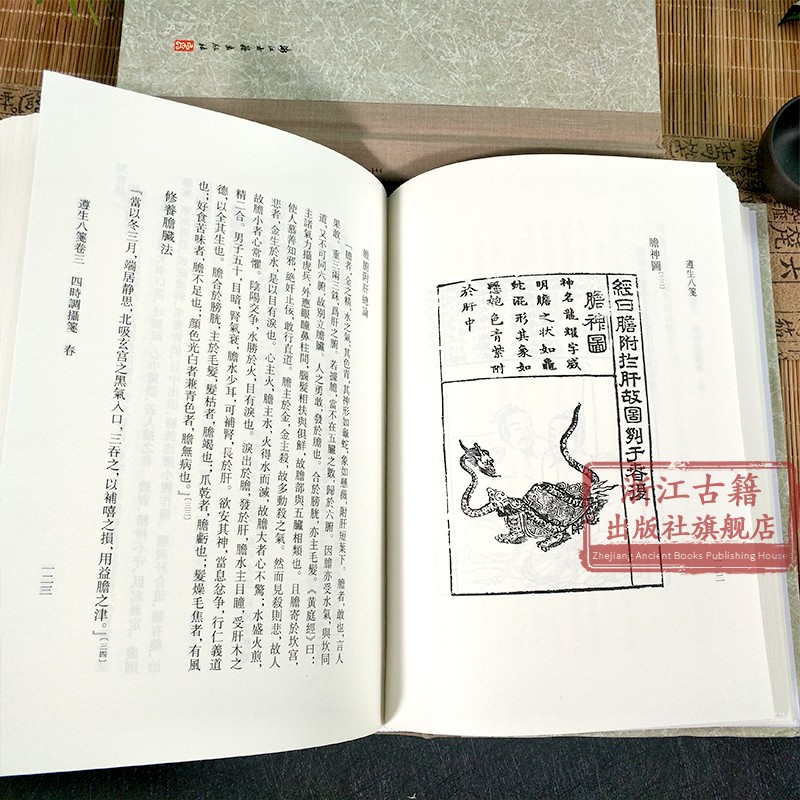 浙江古籍出版社
遵生八箋
膽神圖〔三二〕
經曰膽附扵肝故圖列于春後
膽神圖
神名龍耀字威
明膽之狀如龜
蛇混形其象如
懸袍色青紫附
於肝中
膽腑附肝總論
「膽者,金之精,水之氣,其色青,其神形如龜蛇,象如懸瓠,附肝短葉下。膽者,敢也,言人
果敢。重三兩三銖,爲肝之腑。若據膽,當不在五臟之數,歸於六腑。因膽亦受水氣,與坎同
道,又不可同六腑,故別立膽臟。人之勇敢,發於膽也。合於膀胱,亦主毛髮。《黃庭經》曰:
主諸氣力攝虎兵,外應眼瞳鼻柱間,腦髮相扶與俱鮮,故膽部與五臟相類也。且膽寄於坎宮,
使人慕善知邪,絶奸止佞,敢行直道。膽主於金,金主殺,故多動殺之氣。然而見殺則悲,故人
悲者,金生於水,是以目有淚也。心主火,膽主水,火得水而滅,故膽大者心不驚;水盛火煎,
故膽小者心常懼。陰陽交爭,水勝於火,目有淚也。淚出於膽,發於肝,膽水主目瞳,受肝木之
精二合。男子五十,目暗,腎氣衰,膽水少耳,可補腎,長於肝。欲安其神,當息忿爭,行仁義道
德,以全其生也。膽合於膀胱,主於毛髮。髮枯者,膽竭也;爪乾者,膽虧也;髮燥毛焦者,有風
也;好食苦味者,膽不足也;顏色光白者兼青色者,膽無病也。」〔三三〕
修養膽臟法
「當以冬三月,端居靜思,北吸玄宮之黑氣入口,三吞之,以補嘻之損,用益膽之津。」〔三四〕
遵生八箋卷三 四時調攝箋 春
一二三
浙江古籍
出版社旗舰店
Zhejiang Ancient Books Publishing House